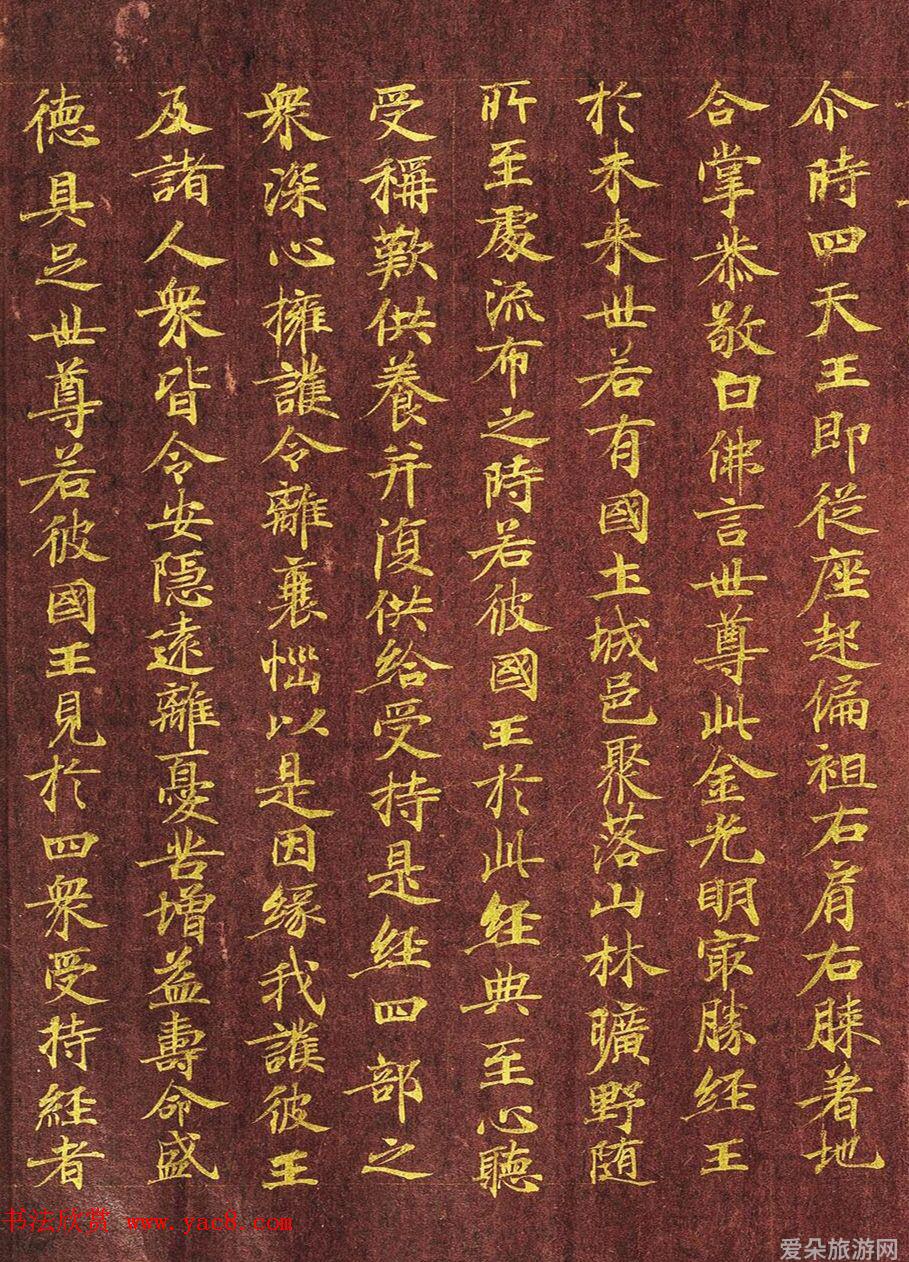 尒時四天王即従座起偏袒右肩右膝著地
合掌恭敬白佛言世尊此金光明㝡勝經王
於未来世若有國土城邑聚落山林曠野随
所至處流布之時若彼國王於此經典至心聽
受稱歎供養并復供給受持是經四部之
衆深心擁護令離衰惱以是因緣我護彼王
及諸人衆皆令安隱遠離憂苦增益壽命盛
徳具足世尊若彼國王見於四衆受持經者
书法欣赏 www.yac8.com
爱朵旅游网